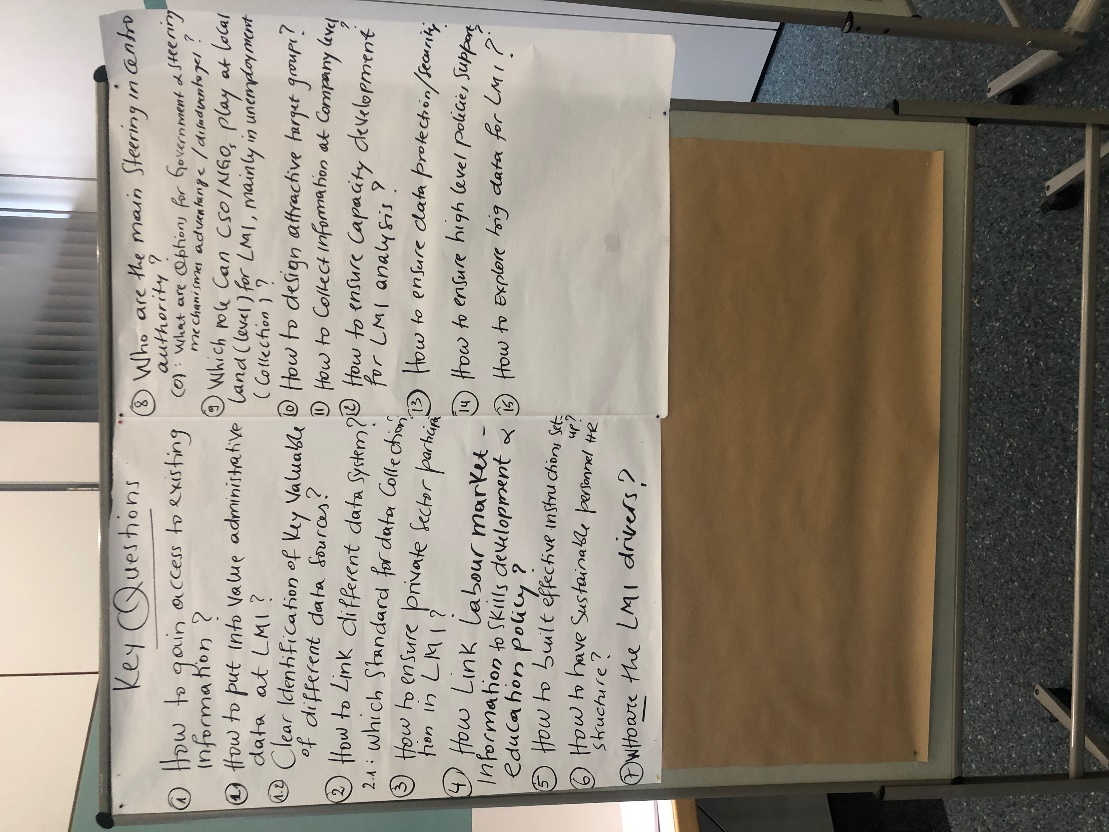 Key Questions
① How to gain access to existing
information?
1.1 How to put into Value administrative
data at LMI?
1.2 Clear Identification of Key Valuable
of different data sources?
② How to Link different data System?
2.1: which Standard for data Collection
③ How to ensure private Sector particip
tion in LMI?
④ How Link Labour market -
Information to Skills development &
education policy?
⑤ How to built effective instructions Set-
up?
⑥ How to have Sustainable personnel HR
structure?
⑦ Who are the LMI drivers?
⑧ Who are the main Steering in Centro
authority?
(o): What are Options for Government & Steering
mechanismes advantange / disadvantages?
⑨ Which role Can CSO/NGO, play at local
land (level) for LMI, mainly in unemployment
(Collection)?
⑩ How to design attractive target groups?
⑪ How to Collect Information at Company level?
⑫ How to ensure Capacity development
for LMI analysis?
⑬ How to ensure data protection/security
⑭ How to ensure high level policies, support?
⑮ How to Explore big data for LMI?